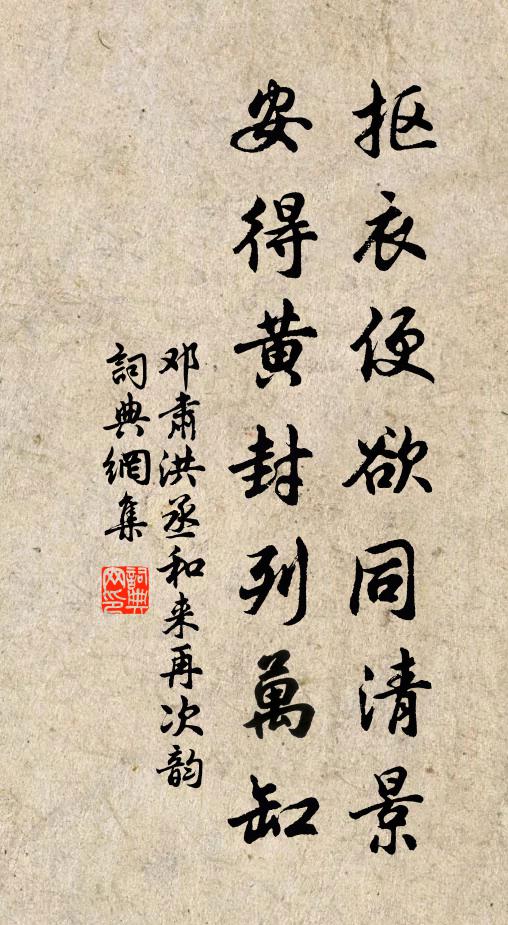 抠衣便欲同清景
安得黄封列萬缸
邓肅洪丞和来再次韵
詞典網集
詞典網印